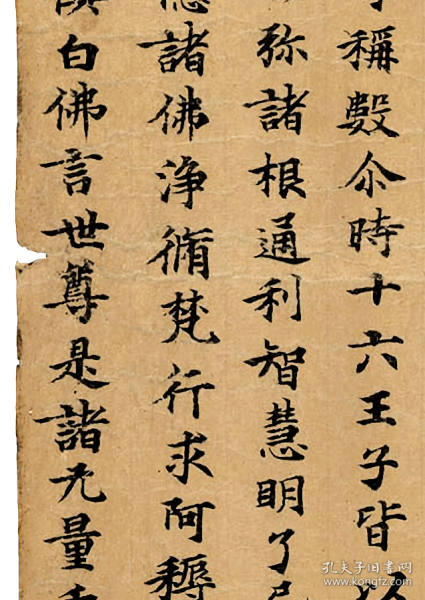 稱數尒時十六王子皆
弥諸根通利智慧明了
諸佛淨脩梵行求阿耨
白佛言世尊是諸无量
孔夫子旧书网
www.kongfz.com